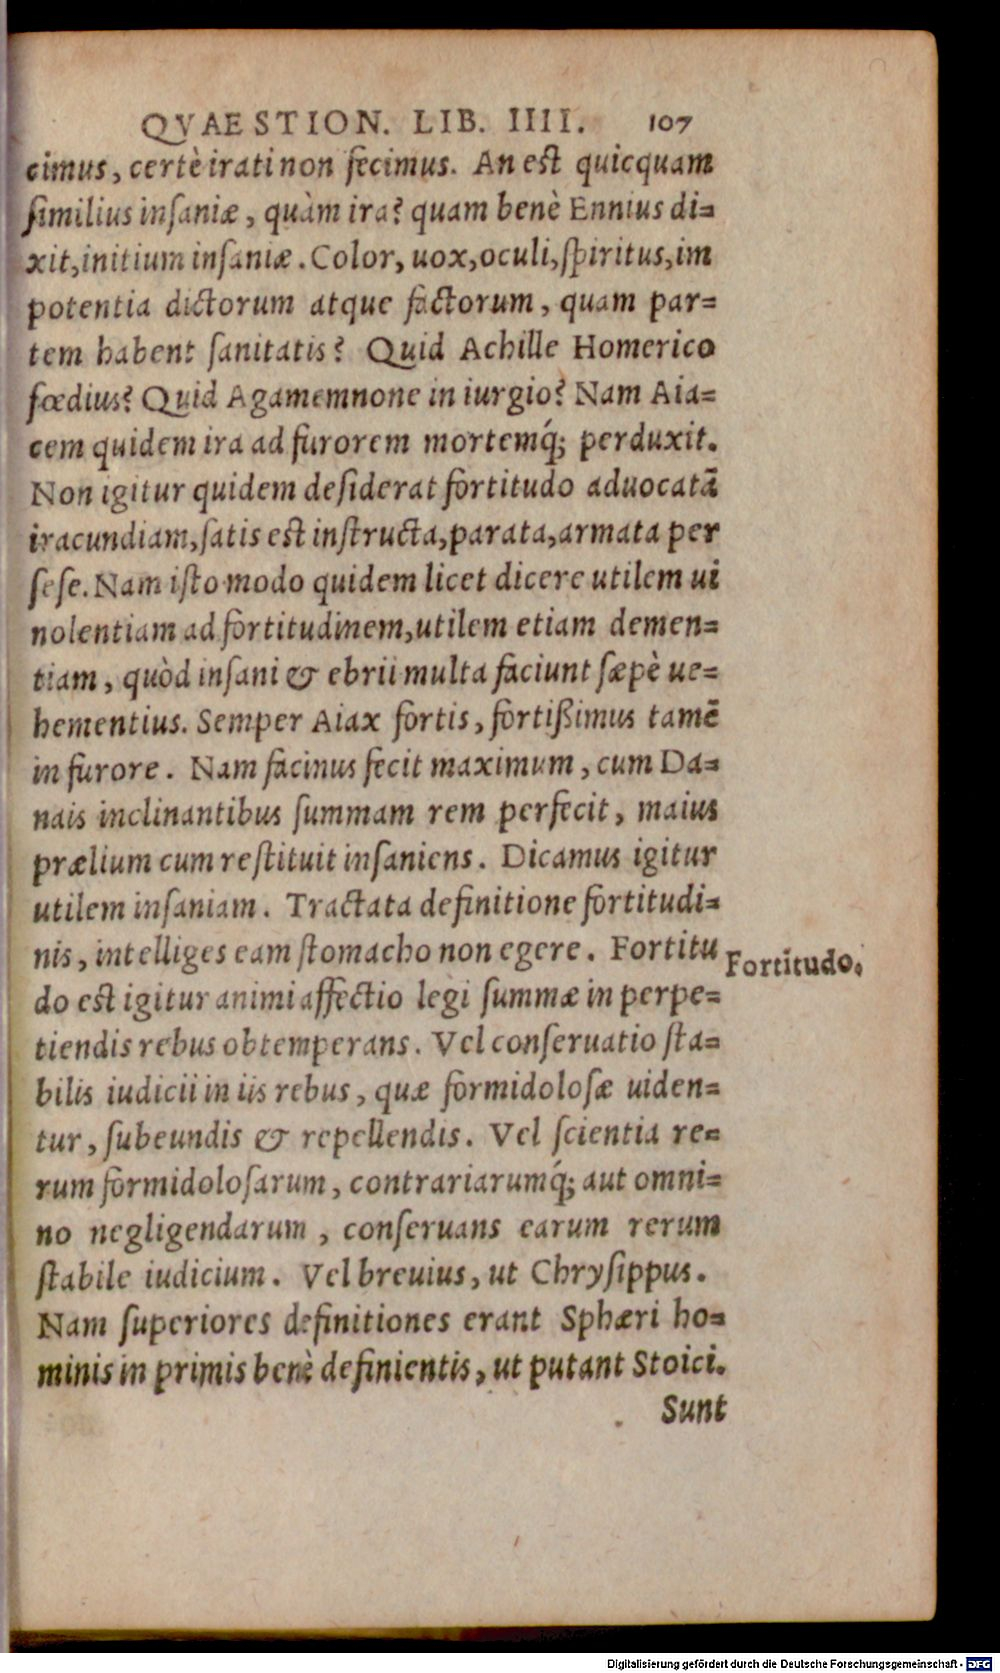 QVAESTION. LIB. IIII. 107
cimus, certè irati non fecimus. An est quicquam
similius insaniæ, quàm ira? quam benè Ennius di=
xit, initium insaniæ. Color, uox, oculi, spiritus, im
potentia dictorum atque factorum, quam par=
tem habent sanitatis? Quid Achille Homerico
fœdius? Quid Agamemnone in iurgio? Nam Aia=
cem quidem ira ad furorem mortemq́; perduxit.
Non igitur quidem desiderat fortitudo aduocatã
iracundiam, satis est instructa, parata, armata per
sese. Nam isto modo quidem licet dicere utilem ui
nolentiam ad fortitudinem, utilem etiam demen=
tiam, quòd insani & ebrii multa faciunt sæpè ue=
hementius. Semper Aiax fortis, fortißimus tamẽ
in furore. Nam facinus fecit maximum, cum Da=
nais inclinantibus summam rem perfecit, maius
prælium cum restituit insaniens. Dicamus igitur
utilem insaniam. Tractata definitione fortitudi=
nis, intelliges eam stomacho non egere. Fortitu
Fortitudo.
do est igitur animi affectio legi summæ in perpe=
tiendis rebus obtemperans. Vel conseruatio sta=
bilis iudicii in iis rebus, quæ formidolosæ uiden=
tur, subeundis & repellendis. Vel scientia re=
rum formidolosarum, contrariarumq́; aut omni=
no negligendarum, conseruans earum rerum
stabile iudicium. Vel breuius, ut Chrysippus.
Nam superiores definitiones erant Sphæri ho=
minis in primis benè definientis, ut putant Stoici.
Sunt
Digitalisierung gefördert durch die Deutsche Forschungsgemeinschaft - DFG